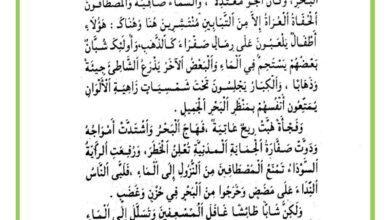 البَحْرِ، وَكَانَ الْجَوُّ مُعْتَدِلًا، وَالسَّمَاءُ صَافِيَةً وَالْمُصْطَافُونَ
الْحُفَاةُ الْعُرَاةُ إِلاَّ مِنَ التَّبَابِينِ مُنْتَشِرِينَ هُنَا وَهُنَاكَ : هَؤُلَاءِ
أَطْفَالٌ يَلْعَبُونَ عَلَى رِمَالٍ صَفْرَاءَ كَالذَّهَبِ وَأُولَئِكَ شُبَّانٌ
بَعْضُهُمْ يَسْتَحِمُّ فِي الْمَاءِ وَالْبَعْضُ الْآخَرُ يَذْرَعُ الشَّاطِئَ جِيئَةً
وَذَهَابًا ، وَالْكِبَارُ يَجْلِسُونَ تَحْتَ شَمْسِيَّاتٍ زَاهِيَةِ الْأَلْوَانِ
يُمَتِّعُونَ أَنْفُسَهُمْ بِمَنْظَرِ الْبَحْرِ الْجَمِيلِ .
وَفَجْأَةً هَبَّتْ رِيحٌ عَاتِيَةٌ ، فَهَاجَ الْبَحْرُ وَاشْتَدَّتْ أَمْوَاجُهُ
وَدَوَّتْ صَفَّارَةُ الْحِمَايَةِ الْمَدَنِيَّةِ تُعْلِنُ الْخَطَرَ، وَرُفِعَتِ الرَّايَةُ
السَّوْدَاءُ تَمْنَعُ الْمُصْطَافِينَ مِنَ النُّزُولِ إِلَى الْمَاءِ ، فَلَبَّى النَّاسُ
النِّدَاءَ عَلَى مَضَضٍ وَخَرَجُوا مِنَ الْبَحْرِ فِي حُزْنٍ وَغَضَبٍ .
وَلَكِنَّ شَابًّا طَائِشًا غَافَلَ الْمُسْعِفِينَ وَتَسَلَّلَ إِلَى الْمَاءِ